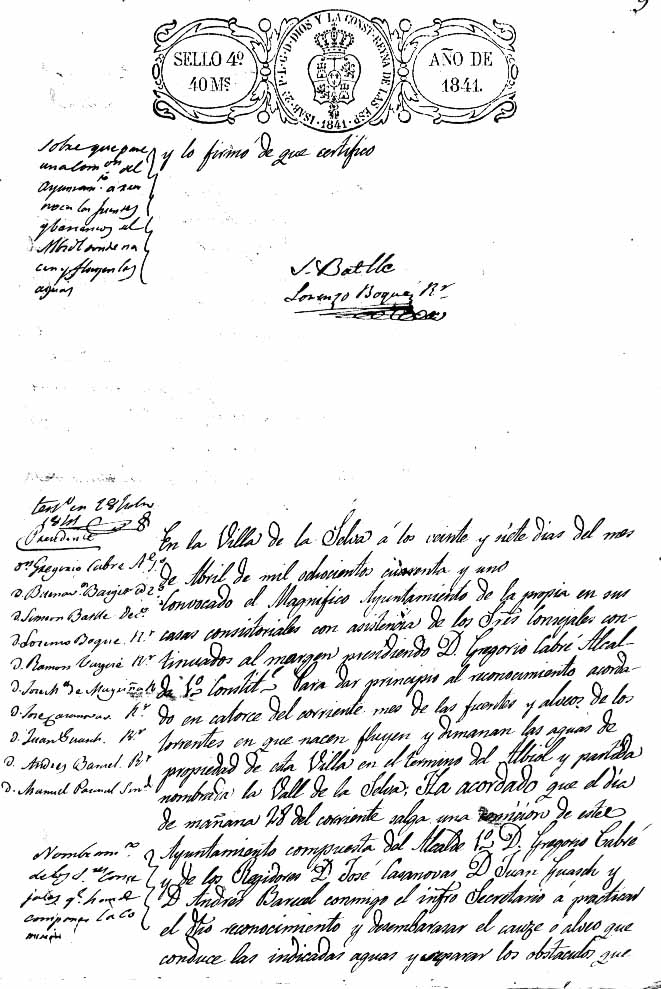 SELLO 4º
40 Mˢ
ISAB. 2ª P. L. G. D. DIOS Y LA CONST. REYNA DE LAS ESP.
1841
AÑO DE
1841.
Sobre que pase
una Com.ⁿ del
Ayuntam.ᵗᵒ a
las fuentes
y barrancos el
Albiol donde na
cen y fluyen las
aguas
y lo firmó de que certifico
J. Batlle
Lorenzo Boqué Rʳ
en 28
1841
Presidente
Gregorio Cabré A. 1º
D. 2º
D. Simon Batlle
D. Lorenzo Boque Rʳ
D. Ramon Rʳ
D. Jose Mª de
D. Jose Casanovas Rʳ
D. Juan Guasch Rʳ
D. Andres Barcel Rʳ
D. Manuel
En la Villa de la Selva á los veinte y siete dias del mes
de Abril de mil ochocientos cuarenta y uno
Convocado el Magnifico Ayuntamiento de la propia en sus
casas consistoriales con asistencia de los Sres Consejales con-
tinuados al margen presidiendo D. Gregorio Cabré Alcal-
de 1º Constitˡ. Para dar principio al reconocimiento acorda-
do en catorce del corriente mes de las fuentes y alveos de los
torrentes en que nacen fluyen y dimanan las aguas de
propiedad de esta Villa en el termino del Albiol y partida
nombrada la Vall de la Selva; Ha acordado que el dia
de mañana 28 del corriente salga una comision de este
Ayuntamiento compuesta del Alcalde 1º D. Gregorio Cabré
y de los Regidores D. José Casanovas D. Juan Guasch y
D. Andrés Barcel conmigo el infro Secretario á practicar
el dho reconocimiento y desembarasar el cauze o alveo que
conduce las indicadas aguas y separar los obstaculos que
Nombram.ᵗᵒ
de los S.ʳᵉˢ Conse
jales q.ᵉ han de
componer la Co
mision